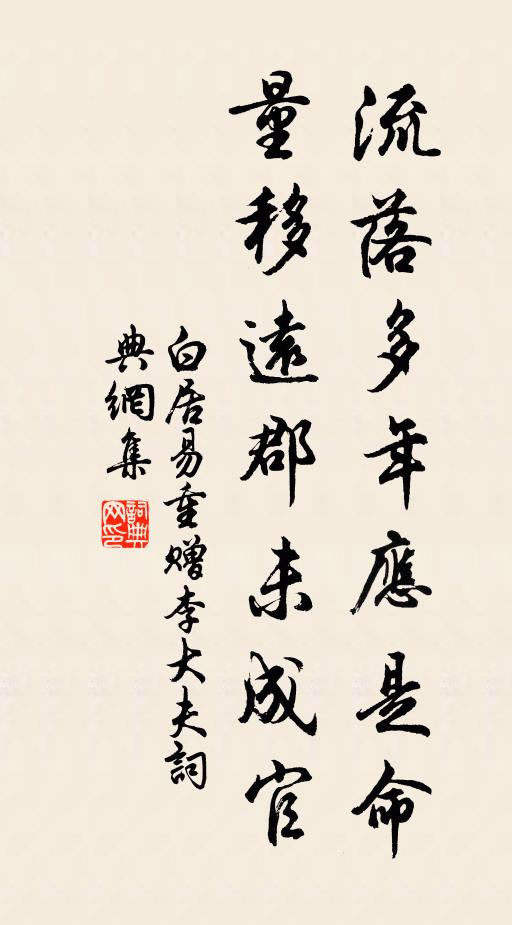 流落多年應是命
量移遠郡未成官
白居易重贈李大夫詞
典網集
詞典网印